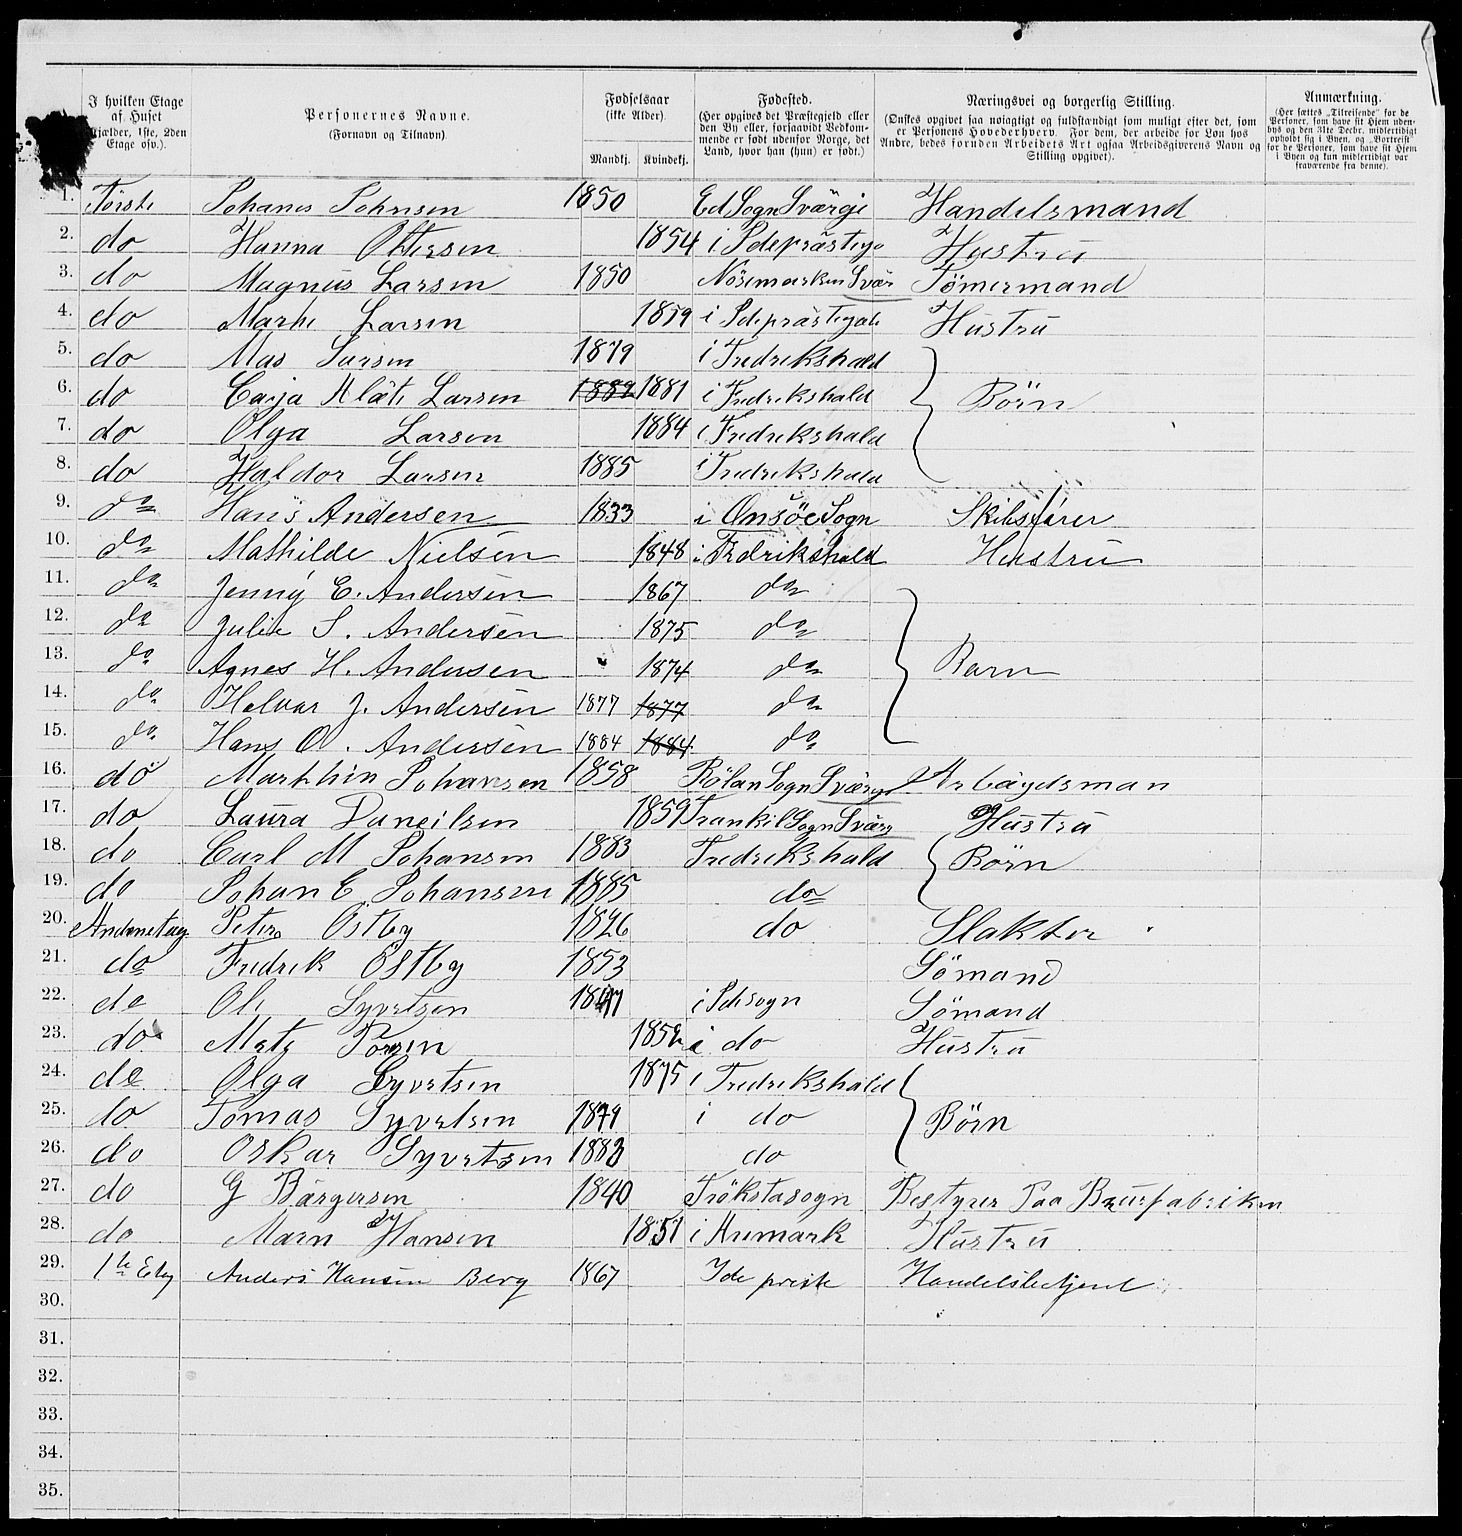 I hvilken Etage af Huset (Kjælder, 1ste, 2den Etage osv.). | Personernes Navne. (Fornavn og Tilnavn). | Fødselsaar (ikke Alder). Mandkj. Kvindekj. | Fødested. (Her opgives det Præstegjeld eller den By eller, forsaavidt Vedkommende er født udenfor Norge, det Land, hvor han (hun) er født.) | Næringsvei og borgerlig Stilling. (Ønskes opgivet saa nøiagtigt og fuldstændigt som muligt efter det, som er Personens Hovederhverv. For dem, der arbeide for Løn hos Andre, bedes foruden Arbeidets Art ogsaa Arbeidsgiverens Navn og Stilling opgivet). | Anmærkning. (Her sættes „Tilreisende" for de Personer, som have sit Hjem udenbys og den 31te Decbr. midlertidigt opholdt sig i Byen, og „Bortreist" for de Personer, som have sit Hjem i Byen og kun midlertidigt var fraværende fra denne).
1. Förste Johanes Johnsen 1850 Ed Sogn Svärge Handelsmand
2. do Hanna Ottersen 1854 i Ideprästeg Hustru
3. do Magnus Larsen 1850 Nösemarken Svär Tömermand
4. do Marte Larsen 1859 i Ideprästegale Hustru
5. do Mas Larsen 1879 i Fredrikshald
6. do Carja Alete Larsen 1882 1881 i Fredrikshald Börn
7. do Olga Larsen 1884 i Fredrikshald
8. do Haldor Larsen 1885 i Fredrikshald
9. do Hans Andersen 1833 i Onsöe Sogn Skibsfører
10. do Mathilde Nielsen 1848 i Fredrikshald Hustru
11. do Jenny E. Andersen 1867 do
12. do Julie S. Andersen 1875 do
13. do Agnes H. Andersen 1874 do Barn
14. do Halvar J. Andersen 1877 1877 do
15. do Hans O. Andersen 1884 1884 do
16. do Markhin Johansen 1858 Rölan Sogn Svärge Arbäydsman
17. do Laura Daneilsen 1859 Frankil Sogn Svärg Hustru
18. do Carl M Johansen 1883 Fredrikshald Börn
19. do Johan E Johansen 1885 do
20. Andenetag Peter Östby 1826 do Slakter
21. do Fredrik Östby 1853 Sömand
22. do Ole Syvertsen 1847 i Idesogn Sömand
23. do Mate 1852 i do Hustru
24. do Olga Syvertsen 1875 i Fredrikshald
25. do Tomas Syvertsen 1879 i do Börn
26. do Oskar Syvertsen 1883 do
27. do G Bärgersen 1840 Trökstasogn Bestyrer Paa Brurfabriken
28. do Marn Hansen 1851 i Aremark Hustru
29. 1ste Etg Anders Hansen Berg 1867 Ide prest Handelsbetjent
30.
31.
32.
33.
34.
35.